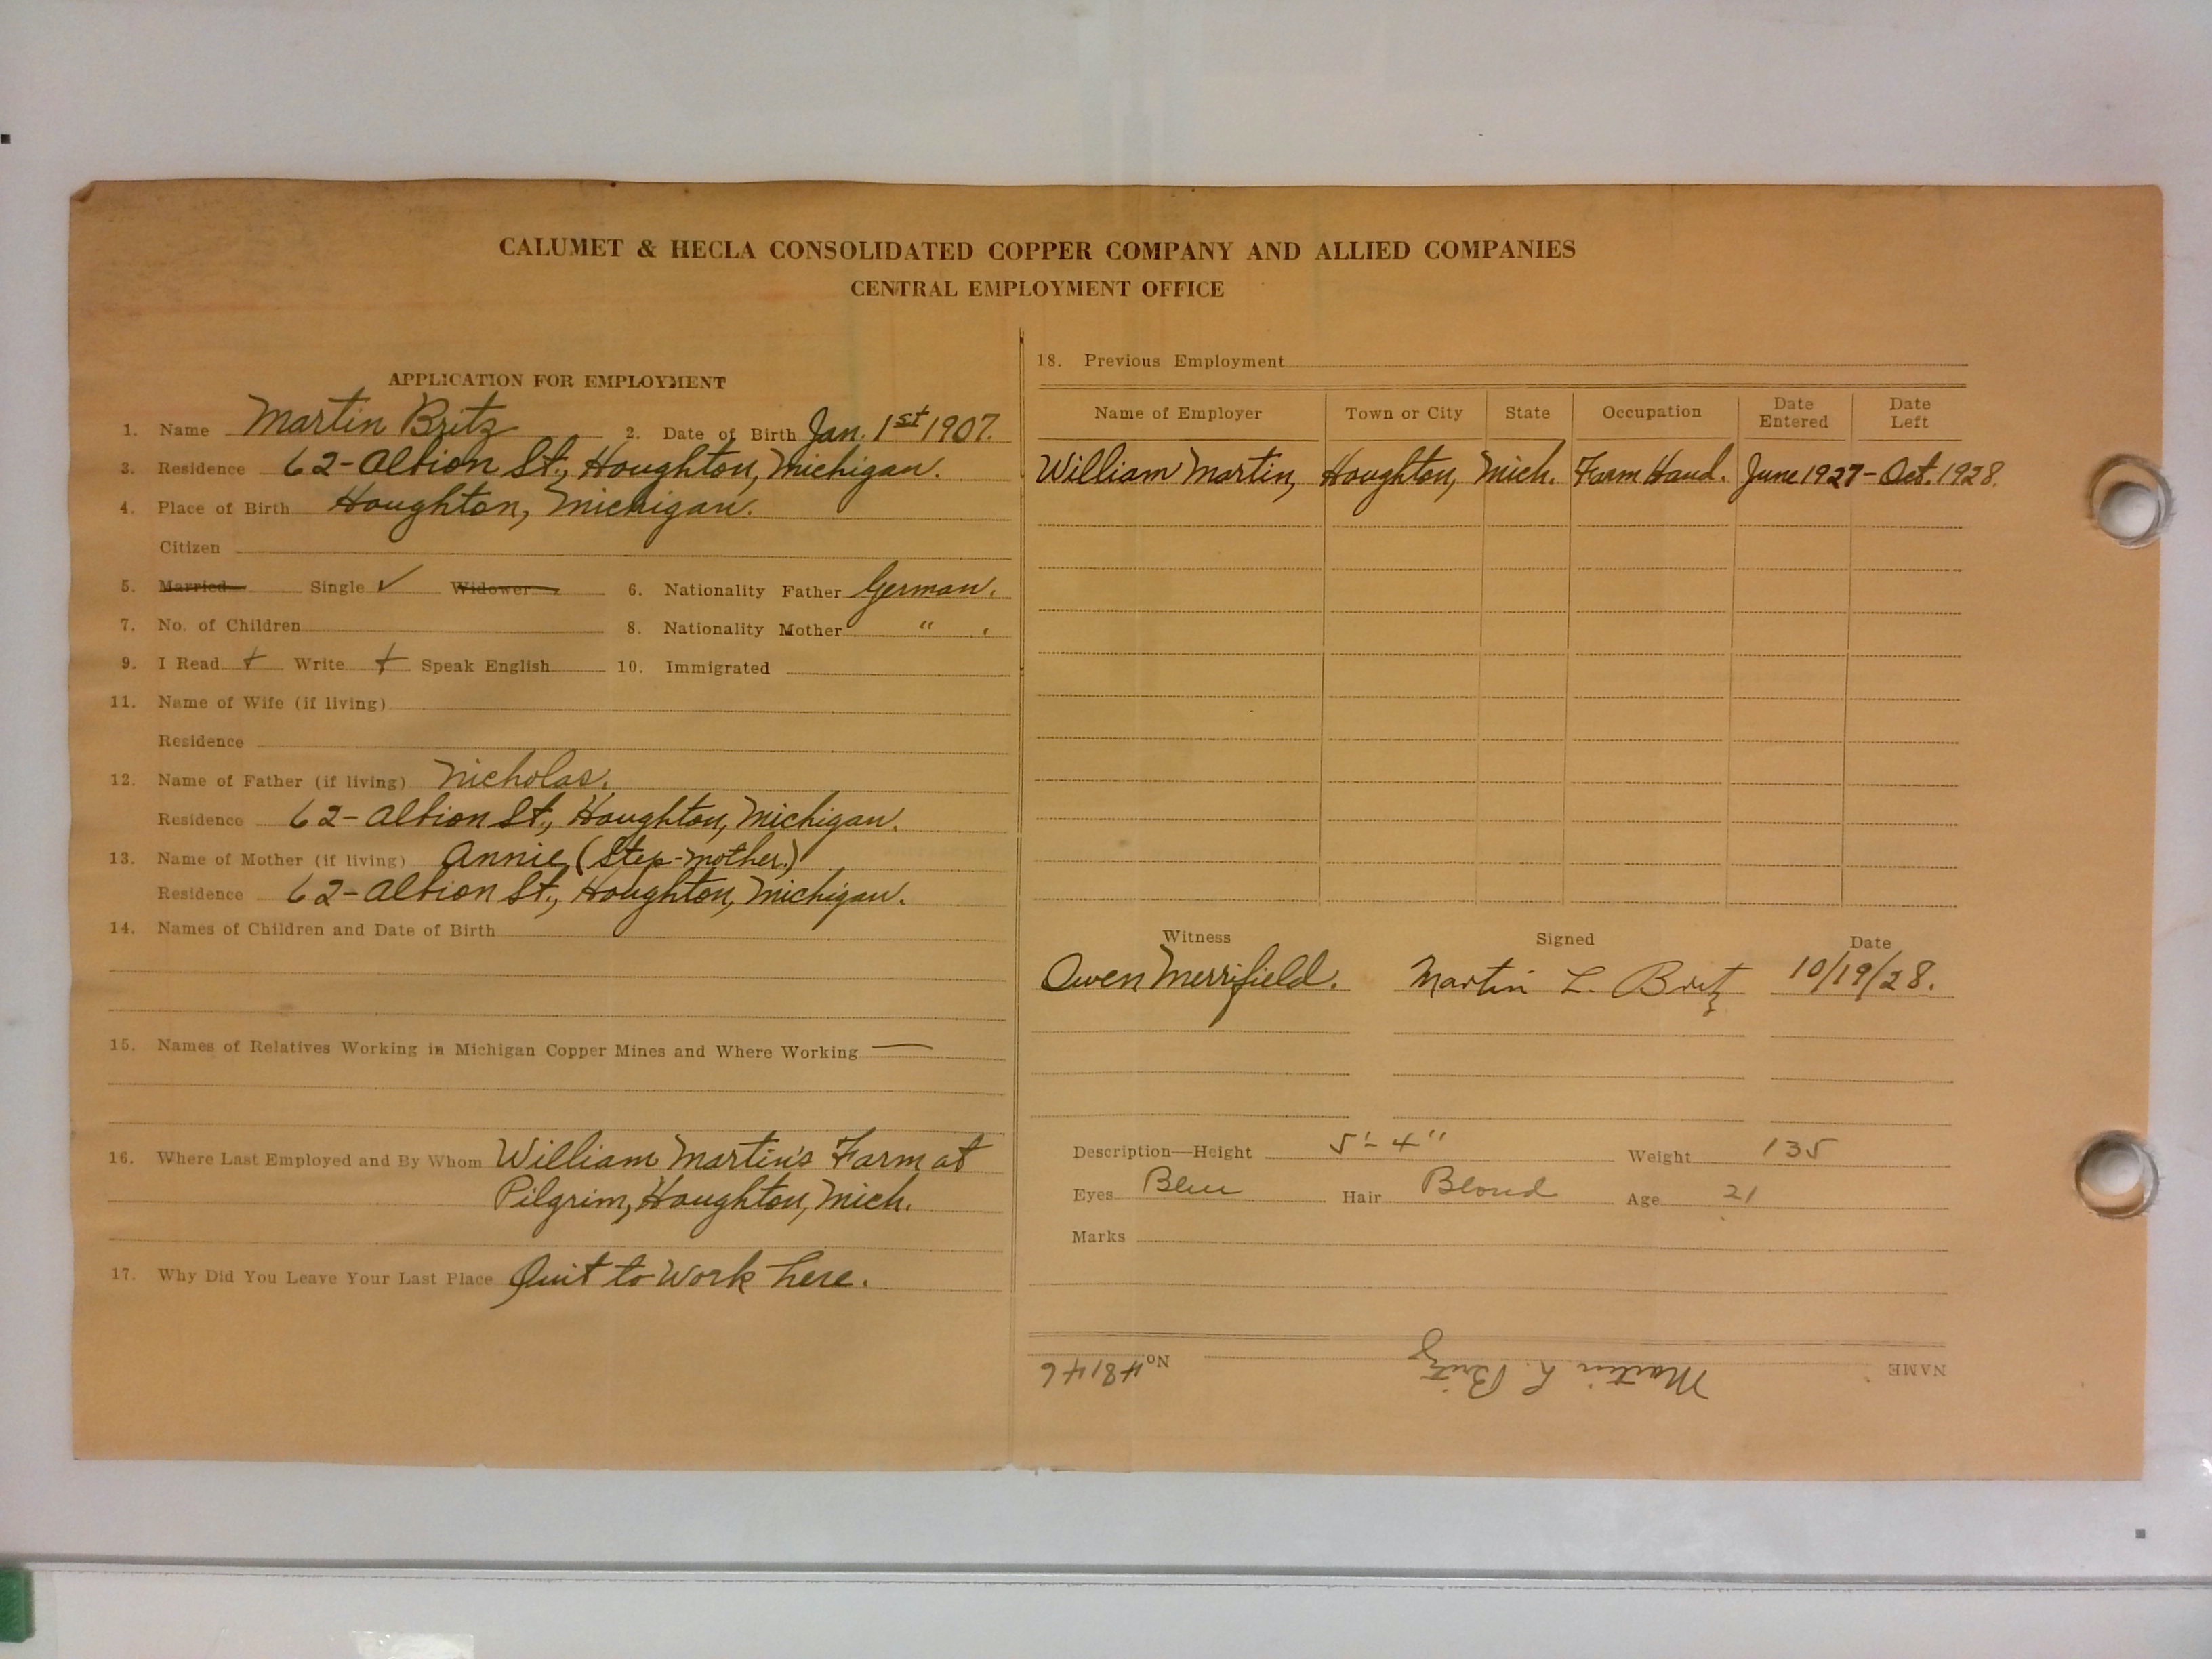 CALUMET & HECLA CONSOLIDATED COPPER COMPANY AND ALLIED COMPANIES
CENTRAL EMPLOYMENT OFFICE
APPLICATION FOR EMPLOYMENT
1. Name Martin Britz 2. Date of Birth Jan. 1st 1907.
3. Residence 62-Albion St., Houghton, Michigan.
4. Place of Birth Houghton, Michigan.
Citizen
5. Married Single ✓ Widower 6. Nationality Father German.
7. No. of Children 8. Nationality Mother " .
9. I Read + Write + Speak English 10. Immigrated
11. Name of Wife (if living)
Residence
12. Name of Father (if living) Nicholas.
Residence 62-Albion St., Houghton, Michigan.
13. Name of Mother (if living) Annie (Step-mother.)
Residence 62-Albion St., Houghton, Michigan.
14. Names of Children and Date of Birth
15. Names of Relatives Working in Michigan Copper Mines and Where Working —
16. Where Last Employed and By Whom William Martin's Farm at
Pilgrim, Houghton, Mich.
17. Why Did You Leave Your Last Place Quit to Work here.
18. Previous Employment
Name of Employer Town or City State Occupation Date Entered Date Left
William Martin, Houghton, Mich. Farm Hand. June 1927 - Oct. 1928.
Witness Signed Date
Owen Merrifield. Martin L. Britz 10/19/28.
Description—Height 5'-4" Weight 135
Eyes Blue Hair Blond Age 21
Marks
NAME Martin L. Britz No. 48146